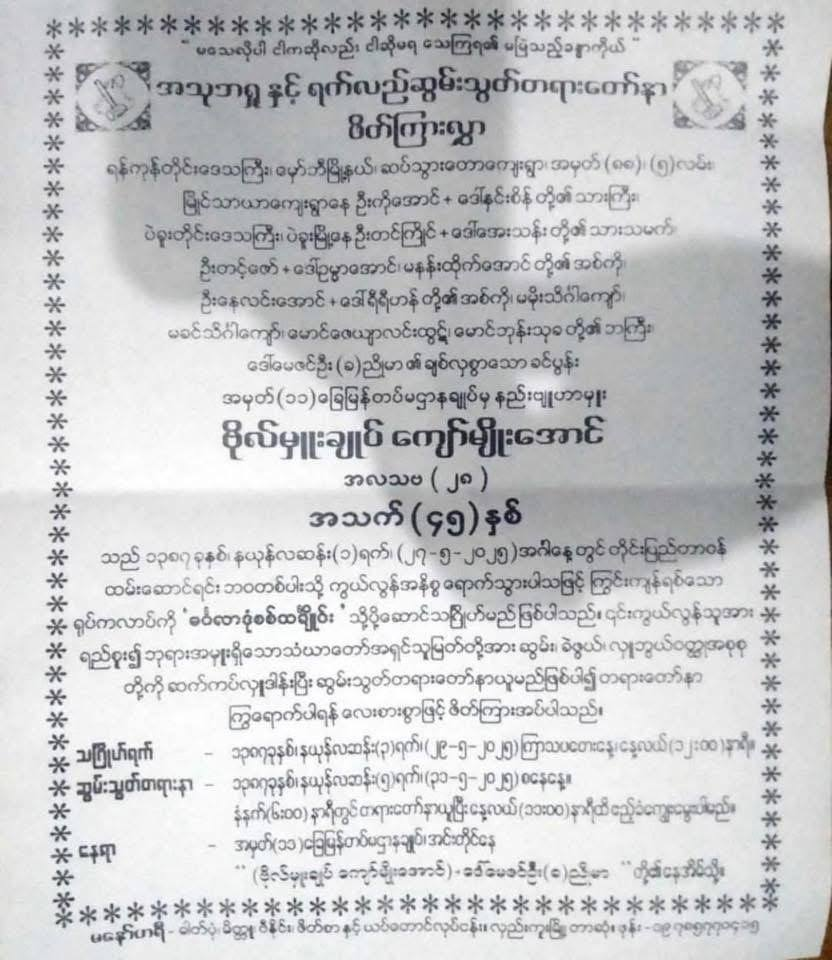 " မသေလိုပါ ငါကဆိုလည်း ငါဆိုမရ သေကြရ၏ မမြဲသည့်ခန္ဓာကိုယ် "
အသုဘရှု နှင့် ရက်လည်ဆွမ်းသွတ်တရားတော်နာ
ဖိတ်ကြားလွှာ
ရန်ကုန်တိုင်းဒေသကြီး၊ မှော်ဘီမြို့နယ်၊ ဆပ်သွားတောကျေးရွာ၊ အမှတ် (၈၈)၊ (၅) လမ်း၊
မြိုင်သာယာကျေးရွာနေ ဦးကိုအောင် + ဒေါ်နှင်းစိန် တို့၏ သားကြီး၊
ပဲခူးတိုင်းဒေသကြီး၊ ပဲခူးမြို့နေ ဦးတင်ကြိုင် + ဒေါ်အေးသန်း တို့၏ သားသမက်၊
ဦးတင့်ဇော် + ဒေါ်ဥမ္မာအောင်၊ မနန်းထိုက်အောင် တို့၏ အစ်ကို၊
ဦးနေလင်းအောင် + ဒေါ်ရီရီဟန် တို့၏ အစ်ကို၊ မမိုးသိင်္ဂါကျော်၊
မခင်သိင်္ဂါကျော်၊ မောင်ဇေယျာလင်းထွဋ်၊ မောင်ဘုန်းသုခ တို့၏ ဘကြီး၊
ဒေါ်မေဇင်ဦး (ခ) ညိုမာ ၏ ချစ်လှစွာသော ခင်ပွန်း
အမှတ် (၁၁) ခြေမြန်တပ်မဌာနချုပ်မှ နည်းဗျူဟာမှူး
ဗိုလ်မှူးချုပ် ကျော်မျိုးအောင်
အလသဗ ( ၂၈ )
အသက် (၄၅) နှစ်
သည် ၁၃၈၇ ခုနှစ်၊ နယုန်လဆန်း(၁)ရက်၊ (၂၇-၅-၂၀၂၅) အင်္ဂါနေ့ တွင် တိုင်းပြည်တာဝန်
ထမ်းဆောင်ရင်း ဘဝတစ်ပါးသို့ ကွယ်လွန်အနိစ္စ ရောက်သွားပါသဖြင့် ကြွင်းကျန်ရစ်သော
ရုပ်ကလာပ်ကို ' မင်္ဂလာဒုံစစ်သင်္ချိုင်း ' သို့ပို့ဆောင်သင်္ဂြိုဟ်မည် ဖြစ်ပါသည်။ ၎င်းကွယ်လွန်သူအား
ရည်စူး၍ ဘုရားအမှူးရှိသောသံဃာတော်အရှင်သူမြတ်တို့အား ဆွမ်း၊ ခဲဖွယ်၊ လှူဖွယ်ဝတ္ထုအစုစု
တို့ကို ဆက်ကပ်လှူဒါန်းပြီး ဆွမ်းသွတ်တရားတော်နာယူမည်ဖြစ်ပါ၍ တရားတော်နာ
ကြွရောက်ပါရန် လေးစားစွာဖြင့် ဖိတ်ကြားအပ်ပါသည်။
သင်္ဂြိုဟ်ရက် - ၁၃၈၇ခုနှစ်၊ နယုန်လဆန်း(၃)ရက်၊ (၂၉-၅-၂၀၂၅) ကြာသပတေးနေ့၊ နေ့လယ် (၁၂:၀၀) နာရီ။
ဆွမ်းသွတ်တရားနာ - ၁၃၈၇ခုနှစ်၊ နယုန်လဆန်း(၅)ရက်၊ (၃၁-၅-၂၀၂၅) စနေနေ့။
နံနက်(၆:၀၀) နာရီတွင် တရားတော်နာယူပြီး နေ့လယ် (၁၁:၀၀) နာရီထိ ဧည့်ခံကျွေးမွေးပါမည်။
နေရာ - အမှတ်(၁၁) ခြေမြန်တပ်မဌာနချုပ်၊ အင်းတိုင်နေ
" (ဗိုလ်မှူးချုပ် ကျော်မျိုးအောင်) - ဒေါ်မေဇင်ဦး(ခ)ညိုမာ " တို့၏နေအိမ်သို့။
မနော်ဟရီ - ဓါတ်ပုံ၊ မိတ္တူ၊ ဗီနိုင်း၊ ဖိတ်စာ နှင့် ယပ်တောင်လုပ်ငန်း၊ လှည်းကူးမြို့၊ တာဆုံ။ ဖုန်း - ၀၉၇၈၅၇၇၀၄၁၅